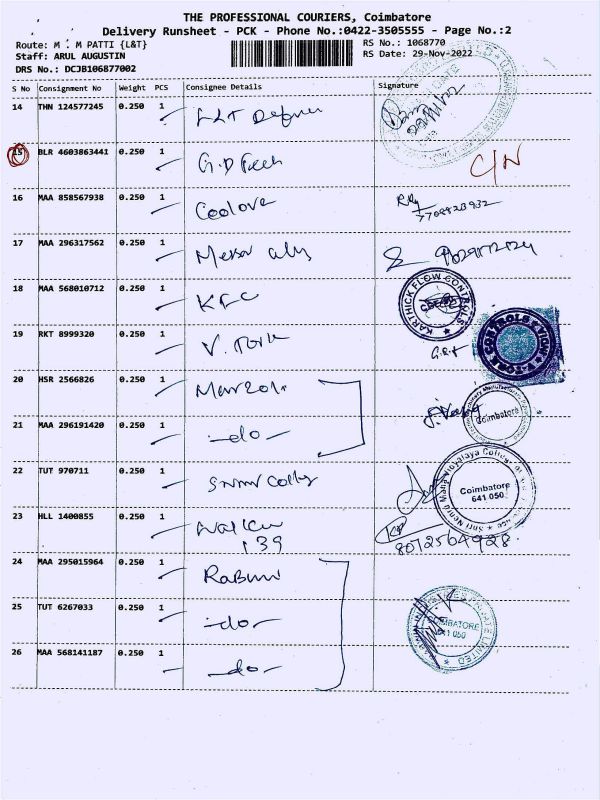 THE PROFESSIONAL COURIERS, Coimbatore
Delivery Runsheet - PCK - Phone No.:0422-3505555 - Page No.:2
Route: M . M PATTI {L&T}
RS No.: 1068770
Staff: ARUL AUGUSTIN
RS Date: 29-Nov-2022
DRS No.: DCJB106877002
S No Consignment No Weight PCS Consignee Details Signature
14 THN 124577245 0.250 1 L&T
15 BLR 4603863441 0.250 1 G.D Tech C/N
16 MAA 858567938 0.250 1 Coolove
17 MAA 296317562 0.250 1
18 MAA 568010712 0.250 1 KFC KARTHICK FLOW CONTROLS
19 RKT 8999320 0.250 1 V. Tork
20 HSR 2566826 0.250 1
21 MAA 296191420 0.250 1 -do- Coimbatore
22 TUT 970711 0.250 1 Coimbatore
641 050
23 HLL 1400855 0.250 1
139 8072564928
24 MAA 295015964 0.250 1
25 TUT 6267033 0.250 1 -do- COIMBATORE
641 050
26 MAA 568141187 0.250 1 -do-